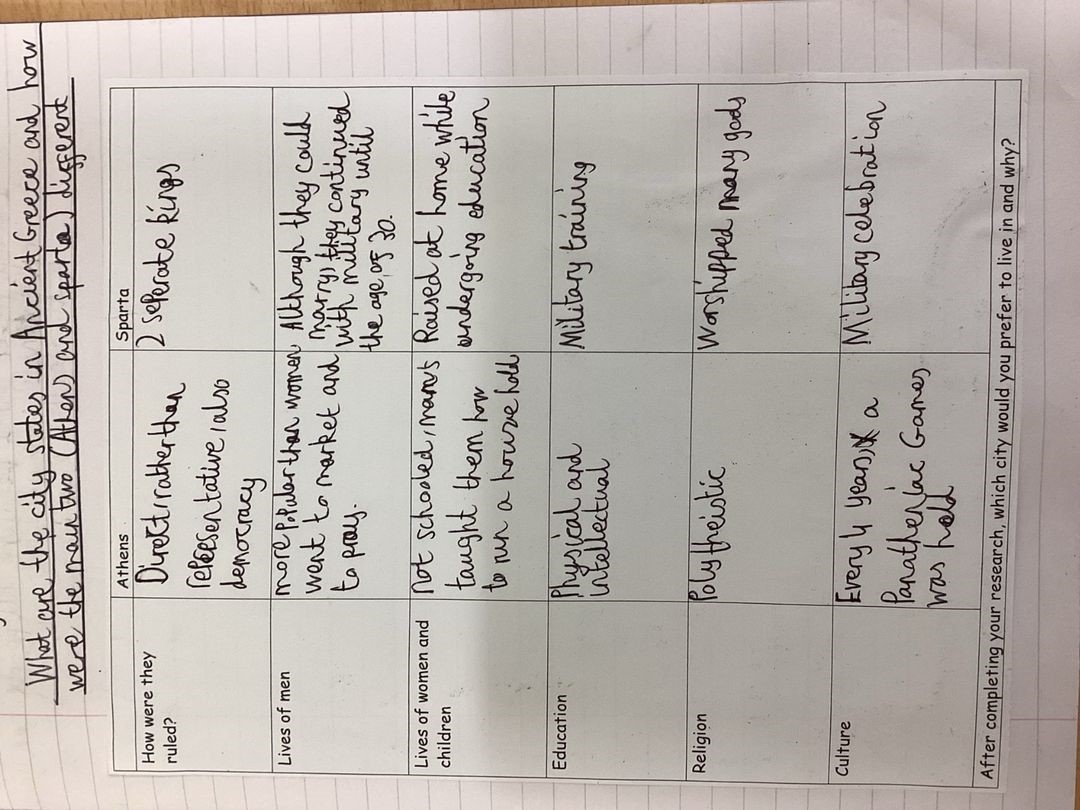 What are the city states in Ancient Greece and how
were the main two (Athens and sparta) different
Athens
Sparta
How were they
ruled?
Direct rather than
representative, also
democracy
2 seperate kings
Lives of men
more popular than women
went to market and
to pray.
Although they could
marry, they continued
with military until
the age of 30.
Lives of women and
children
Not schooled, mam's
taught them how
to run a house hold
Raised at home while
undergoing education
Education
Physical and
intellectual
Military training
Religion
Polytheistic
Worshipped many gods
Culture
Every 4 years, a
Panathenaic Games
was held
Military celebration
After completing your research, which city would you prefer to live in and why?